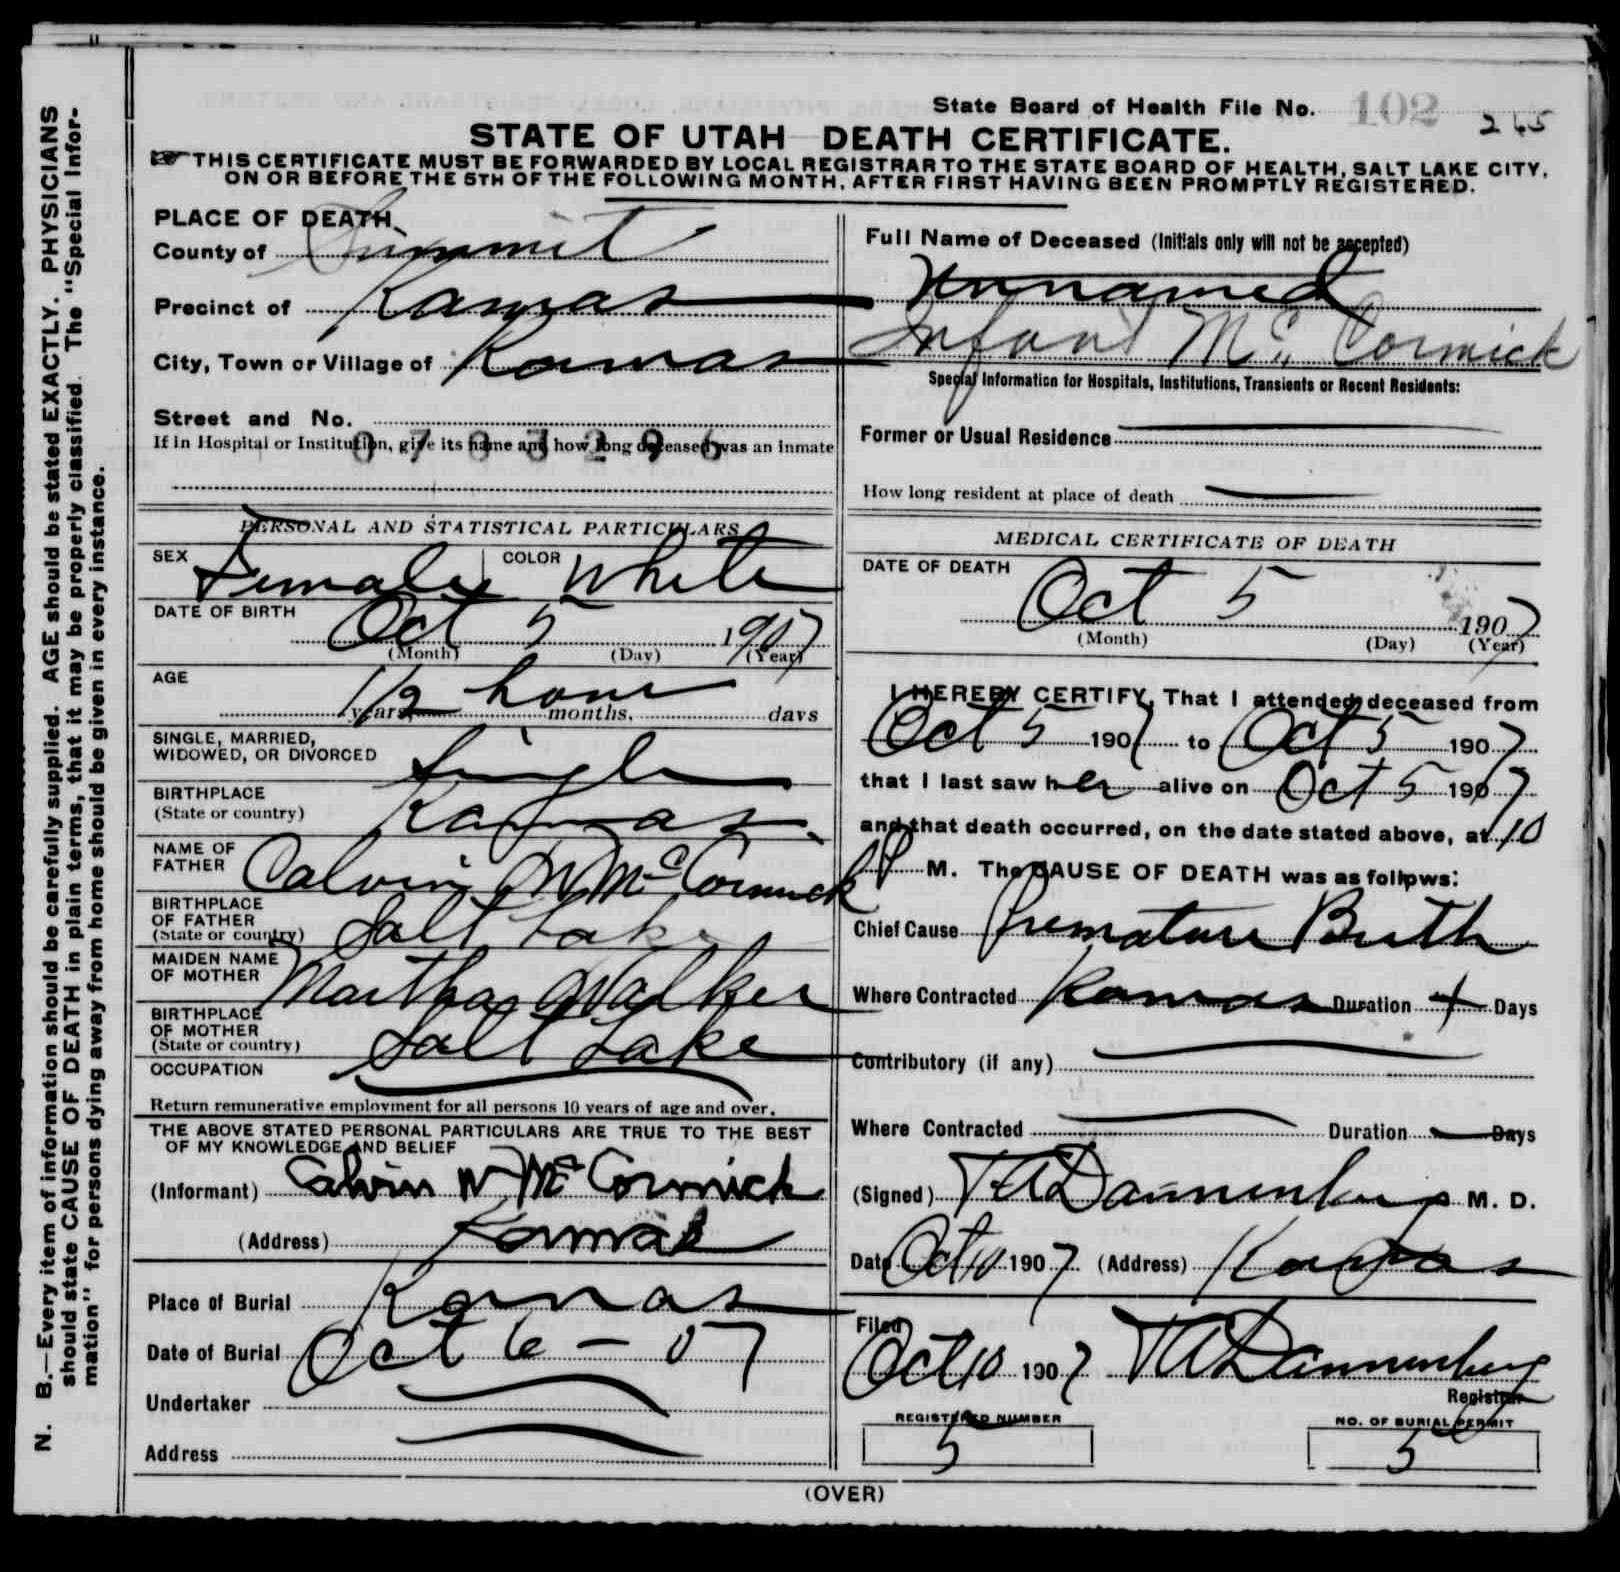 State Board of Health File No. 102 245
STATE OF UTAH DEATH CERTIFICATE.
THIS CERTIFICATE MUST BE FORWARDED BY LOCAL REGISTRAR TO THE STATE BOARD OF HEALTH, SALT LAKE CITY,
ON OR BEFORE THE 5TH OF THE FOLLOWING MONTH, AFTER FIRST HAVING BEEN PROMPTLY REGISTERED.
N. B.—Every item of information should be carefully supplied. AGE should be stated EXACTLY. PHYSICIANS
should state CAUSE OF DEATH in plain terms, that it may be properly classified. The "Special Infor-
mation" for persons dying away from home should be given in every instance.
PLACE OF DEATH
County of Summit
Precinct of Kamas
City, Town or Village of Kamas
Street and No.
If in Hospital or Institution, give its name and how long deceased was an inmate
0703296
PERSONAL AND STATISTICAL PARTICULARS
SEX Female COLOR White
DATE OF BIRTH Oct 5 1907
(Month) (Day) (Year)
AGE 1/2 hour
years, months, days
SINGLE, MARRIED,
WIDOWED, OR DIVORCED Single
BIRTHPLACE
(State or country) Kamas
NAME OF
FATHER Calvin W McCormick
BIRTHPLACE
OF FATHER
(State or country) Salt Lake
MAIDEN NAME
OF MOTHER Martha Walker
BIRTHPLACE
OF MOTHER
(State or country) Salt Lake
OCCUPATION
Return remunerative employment for all persons 10 years of age and over.
THE ABOVE STATED PERSONAL PARTICULARS ARE TRUE TO THE BEST
OF MY KNOWLEDGE AND BELIEF
(Informant) Calvin W McCormick
(Address) Kamas
Place of Burial Kamas
Date of Burial Oct 6 - 07
Undertaker
Address
Full Name of Deceased (Initials only will not be accepted)
Unnamed
Infant McCormick
Special Information for Hospitals, Institutions, Transients or Recent Residents:
Former or Usual Residence
How long resident at place of death
MEDICAL CERTIFICATE OF DEATH
DATE OF DEATH
Oct 5 1907
(Month) (Day) (Year)
I HEREBY CERTIFY, That I attended deceased from
Oct 5 1907 to Oct 5 1907
that I last saw her alive on Oct 5 1907
and that death occurred, on the date stated above, at 10
P M. The CAUSE OF DEATH was as follows:
Chief Cause Premature Birth
Where Contracted Kamas Duration Days
Contributory (if any)
Where Contracted Duration Days
(Signed) T A Dannenberg M. D.
Date Oct 10 1907 (Address) Kamas
Filed
Oct 10 1907 T A Dannenberg
Registrar
REGISTERED NUMBER
5
NO. OF BURIAL PERMIT
5
(OVER)